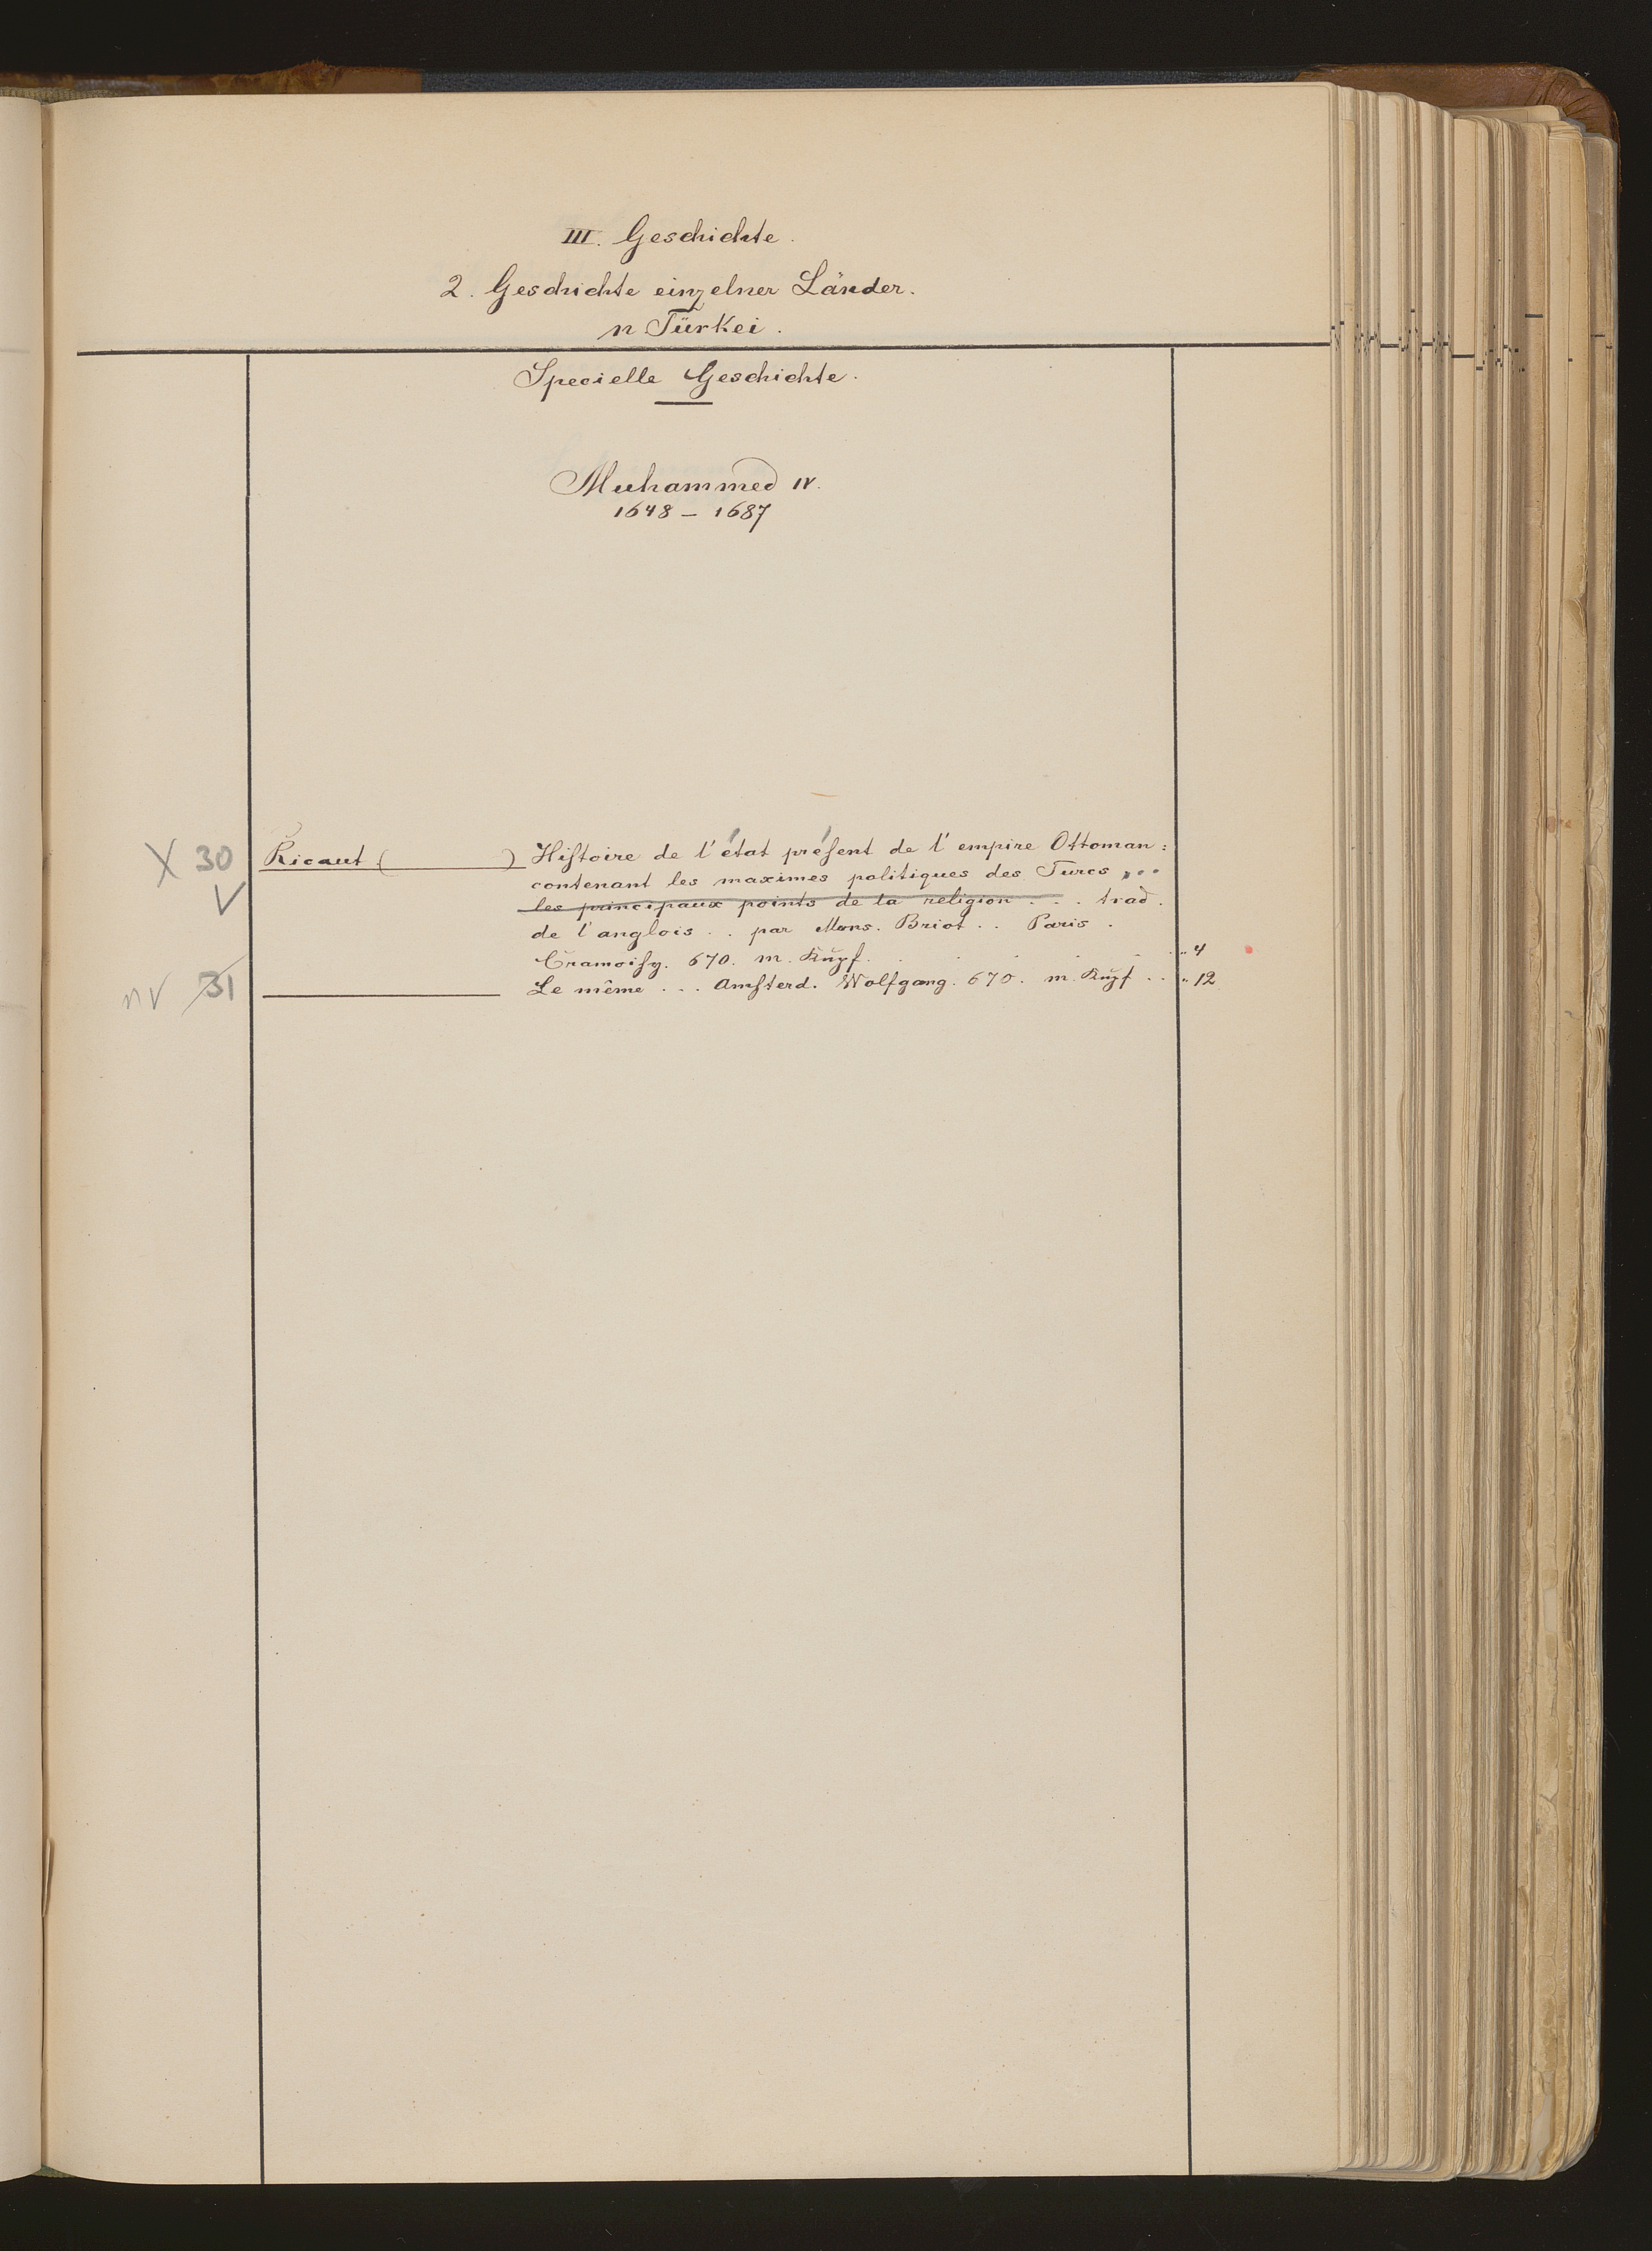 III. Geschichte.
2. Geschichte einzelner Länder.
n Türkei.
Specielle Geschichte.
Muhammed IV.
1648 – 1687
X 30 Ricaut ( ) Hiſtoire de l'état préſent de l'empire Ottoman:
contenant les maximes politiques des Turcs ...
V les principaux points de la religion . . . trad.
de l'anglois . . par Mons. Briot . . Paris .
Cramoiſy. 670. m. Kupf. . . . . . „ 4
nv 31 Le même . . . Amſterd. Wolfgang. 670. m. Kupf . . „ 12